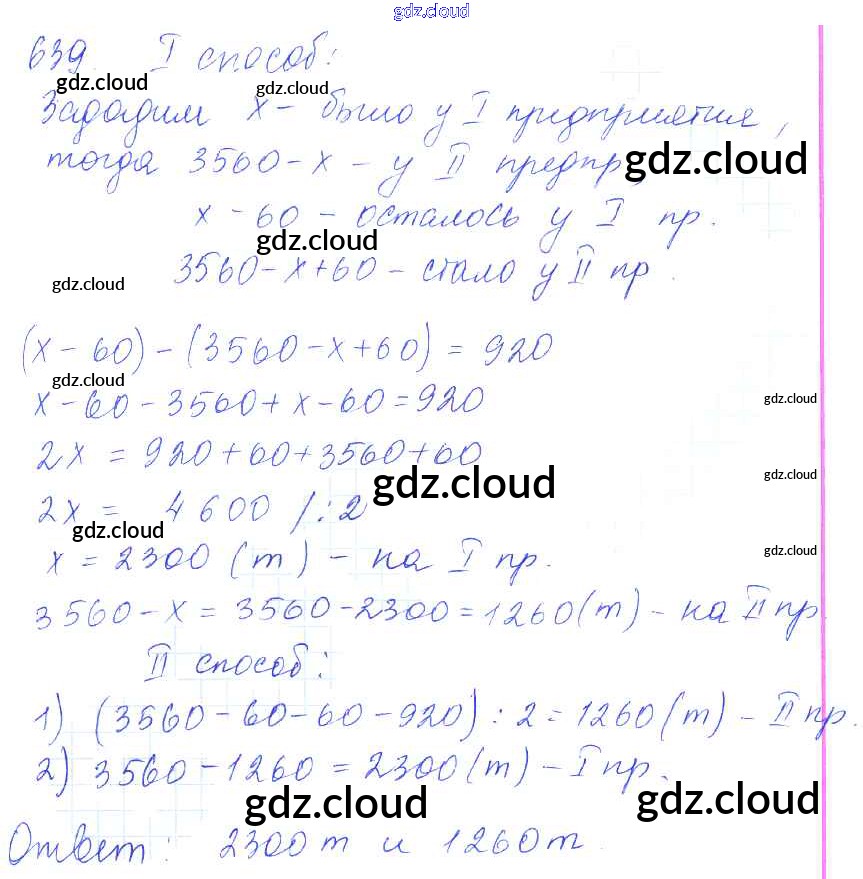 gdz.cloud
639. I способ:
gdz.cloud gdz.cloud
Зададим x - было у I предприятия,
тогда 3560 - x - у II предпр.
gdz.cloud
x - 60 - осталось у I пр.
gdz.cloud
gdz.cloud
3560 - x + 60 - стало у II пр.
gdz.cloud
(x - 60) - (3560 - x + 60) = 920
gdz.cloud
x - 60 - 3560 + x - 60 = 920
gdz.cloud
2x = 920 + 60 + 3560 + 60
gdz.cloud
gdz.cloud
2x = 4600 /:2
gdz.cloud
x = 2300 (т) - на I пр.
gdz.cloud
3560 - x = 3560 - 2300 = 1260 (т) - на II пр
II способ:
1) (3560 - 60 - 60 - 920) : 2 = 1260 (т) - II пр.
2) 3560 - 1260 = 2300 (т) - I пр.
gdz.cloud gdz.cloud
Ответ: 2300 т и 1260 т.